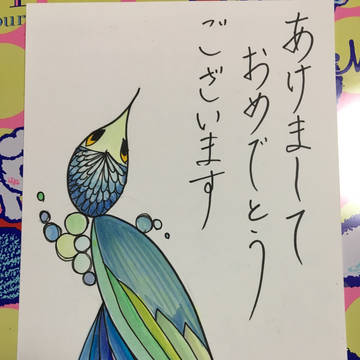 あけまして
おめでとう
ございます
our